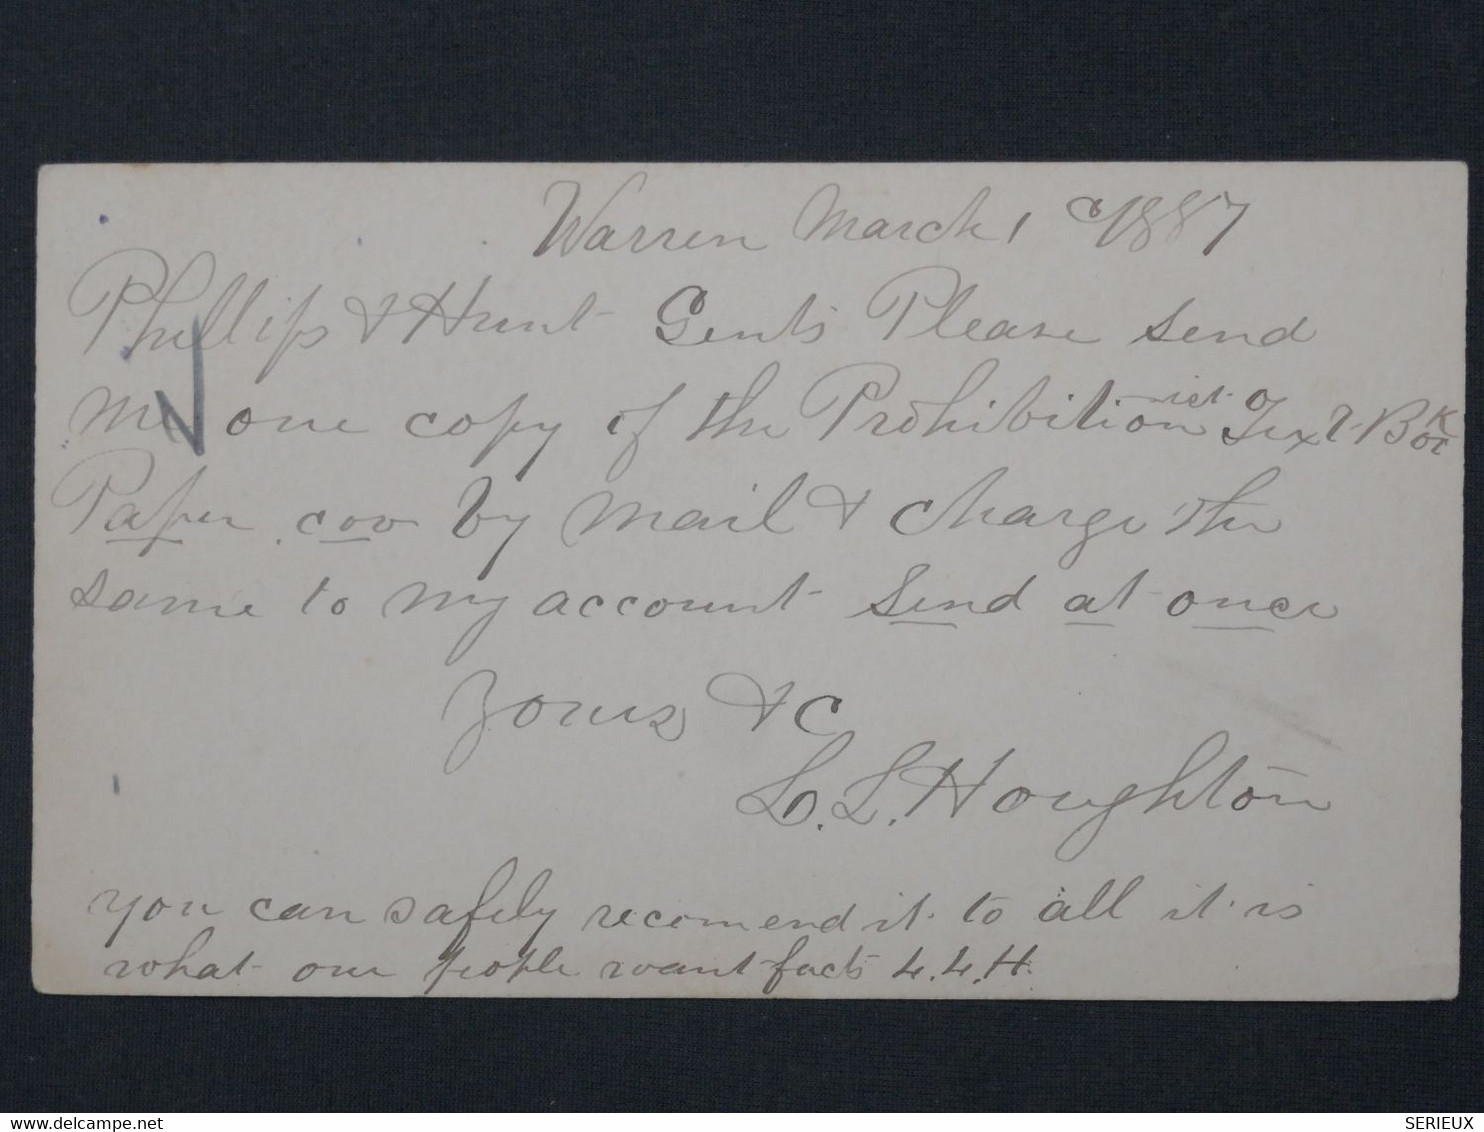 Warren March 1 1887
Phillips & Hunt Gents Please send
me one copy of the Prohibitionist Text Book
Paper cov by mail & charge the
same to my account Send at once
Yours &c
L. L. Houghton
you can safely recomend it to all it is
what our people want facts L.L.H.
delcampe.net
SERIEUX